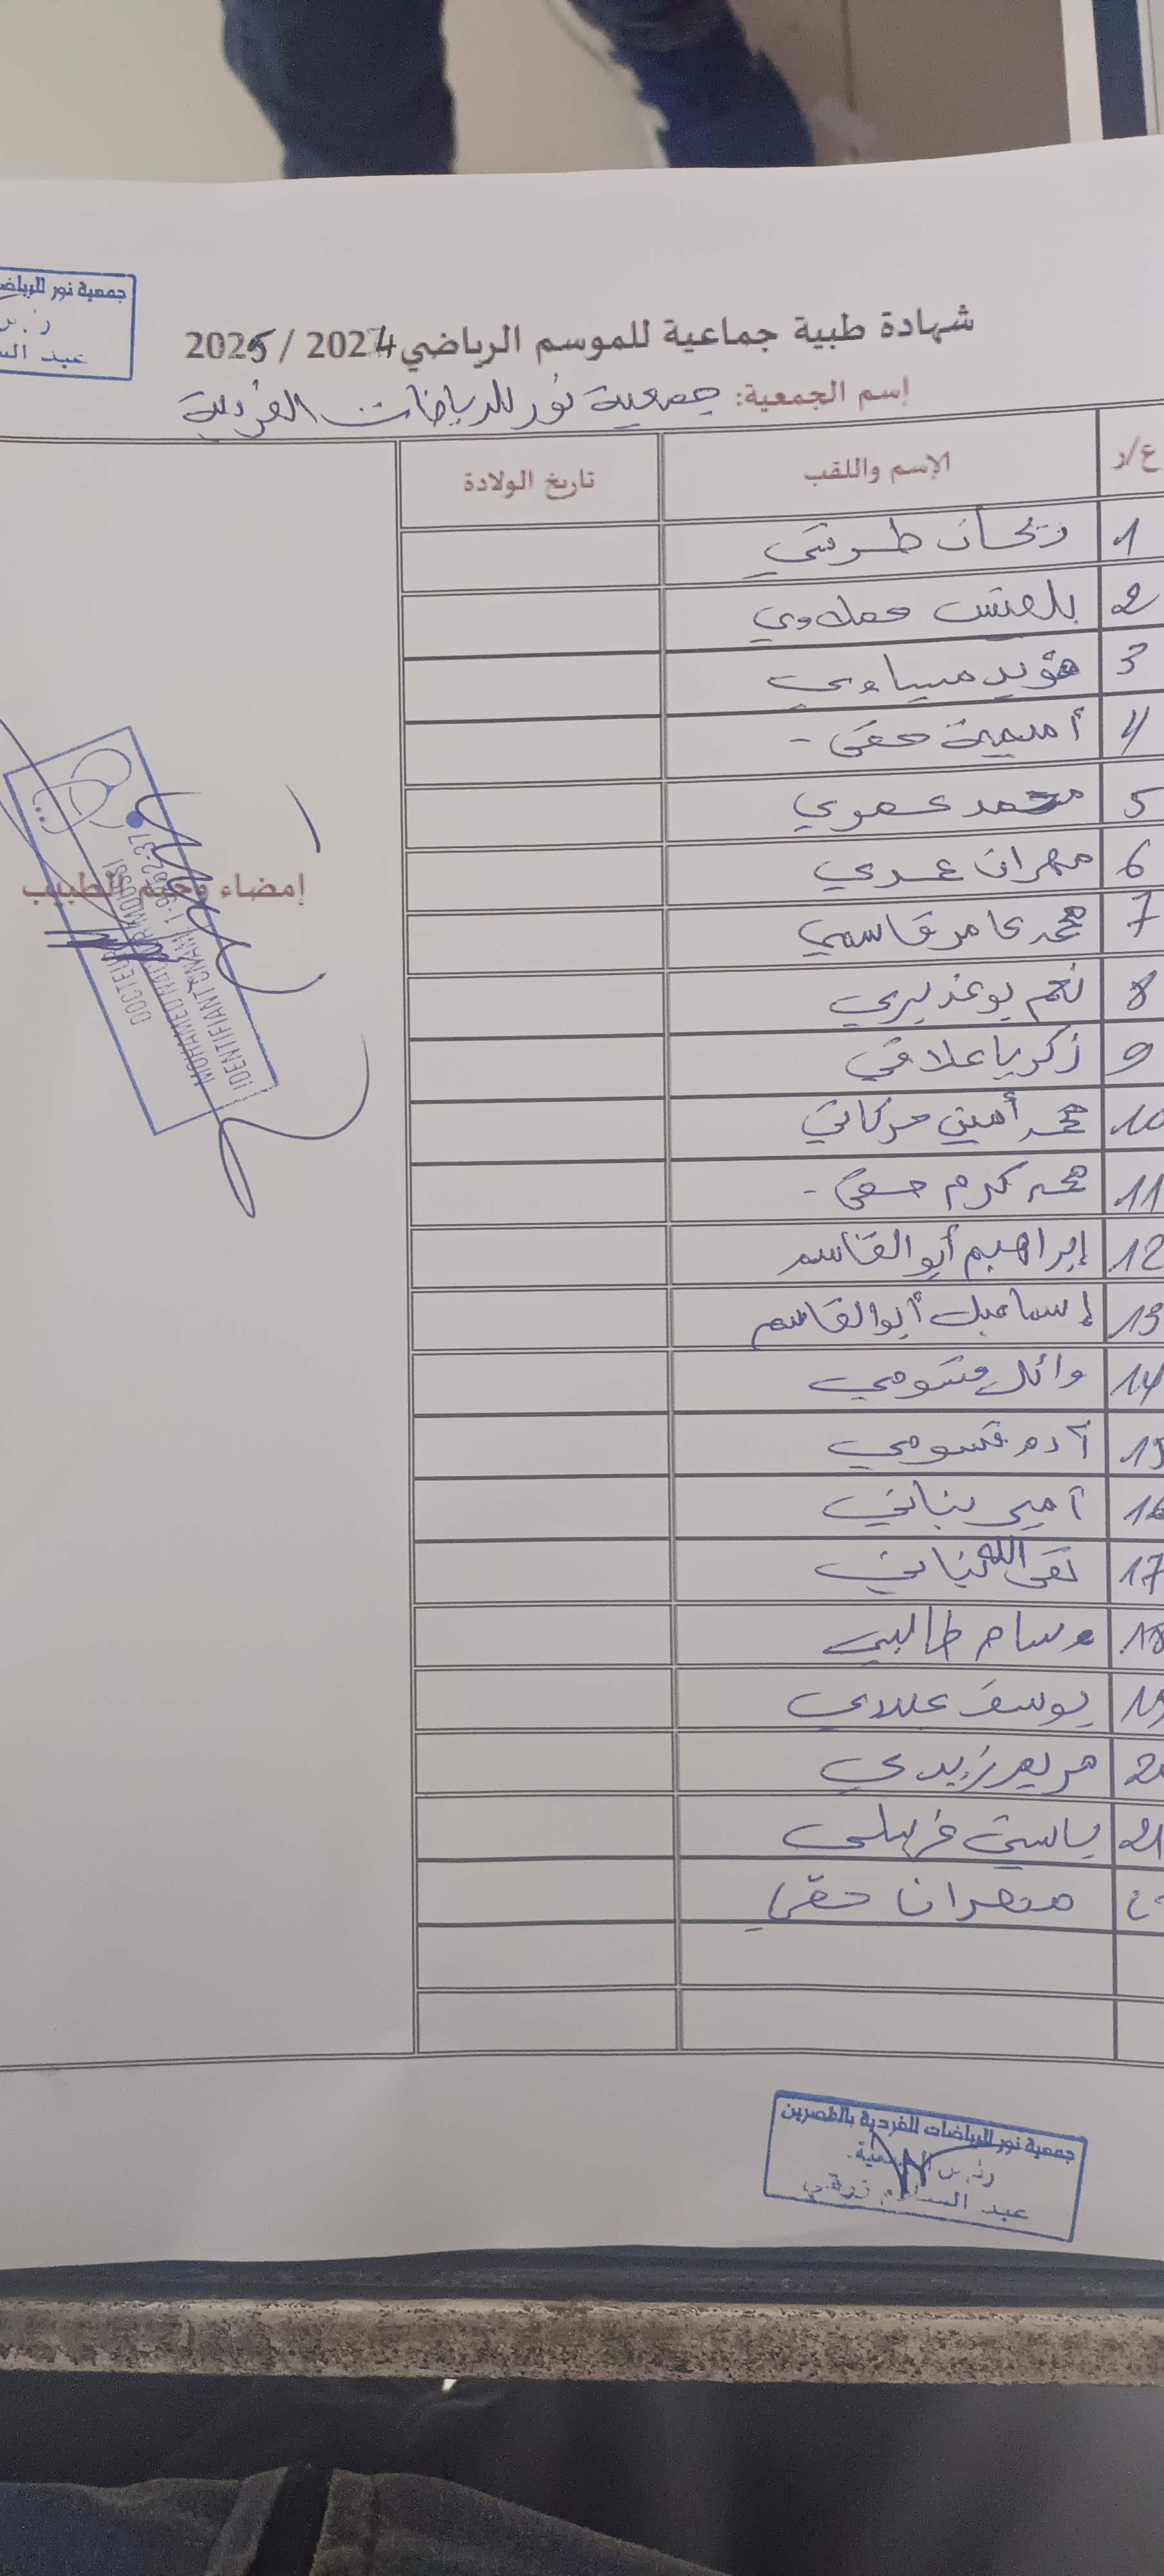 جمعية نور للرياض
عبد الس
شهادة طبية جماعية للموسم الرياضي 2024 / 2025
إسم الجمعية: جمعية نور للرياضات الفردية
ع/ر الإسم واللقب تاريخ الولادة
1 ريحان طرشي
2
3 مؤيد عيساوي
4 أميمة حقي -
5 محمد عموي
6 مهران عمري
7 محمد عامر قاسمي
8 نعم بوغديري
9 زكرياء علاقي
10 محمد أمين حركاتي
11 محمد كرم حقي -
12 إبراهيم أبو القاسم
13 إسماعيل أبو القاسم
14 وائل قسومي
15 آدم قسومي
16 أمير بناني
17 تقى الله بناني
18 وسام طالبي
19 يوسف
20 مريم زيدي
21 ياسين
حقي
إمضاء وختم الطبيب
DOCTEUR
MOHAMED NACEUR MOUSSI
IDENTIFIANT CNAM
جمعية نور للرياضات الفردية بالقصرين
رئيس الجمعية
عبد السلام زرقي